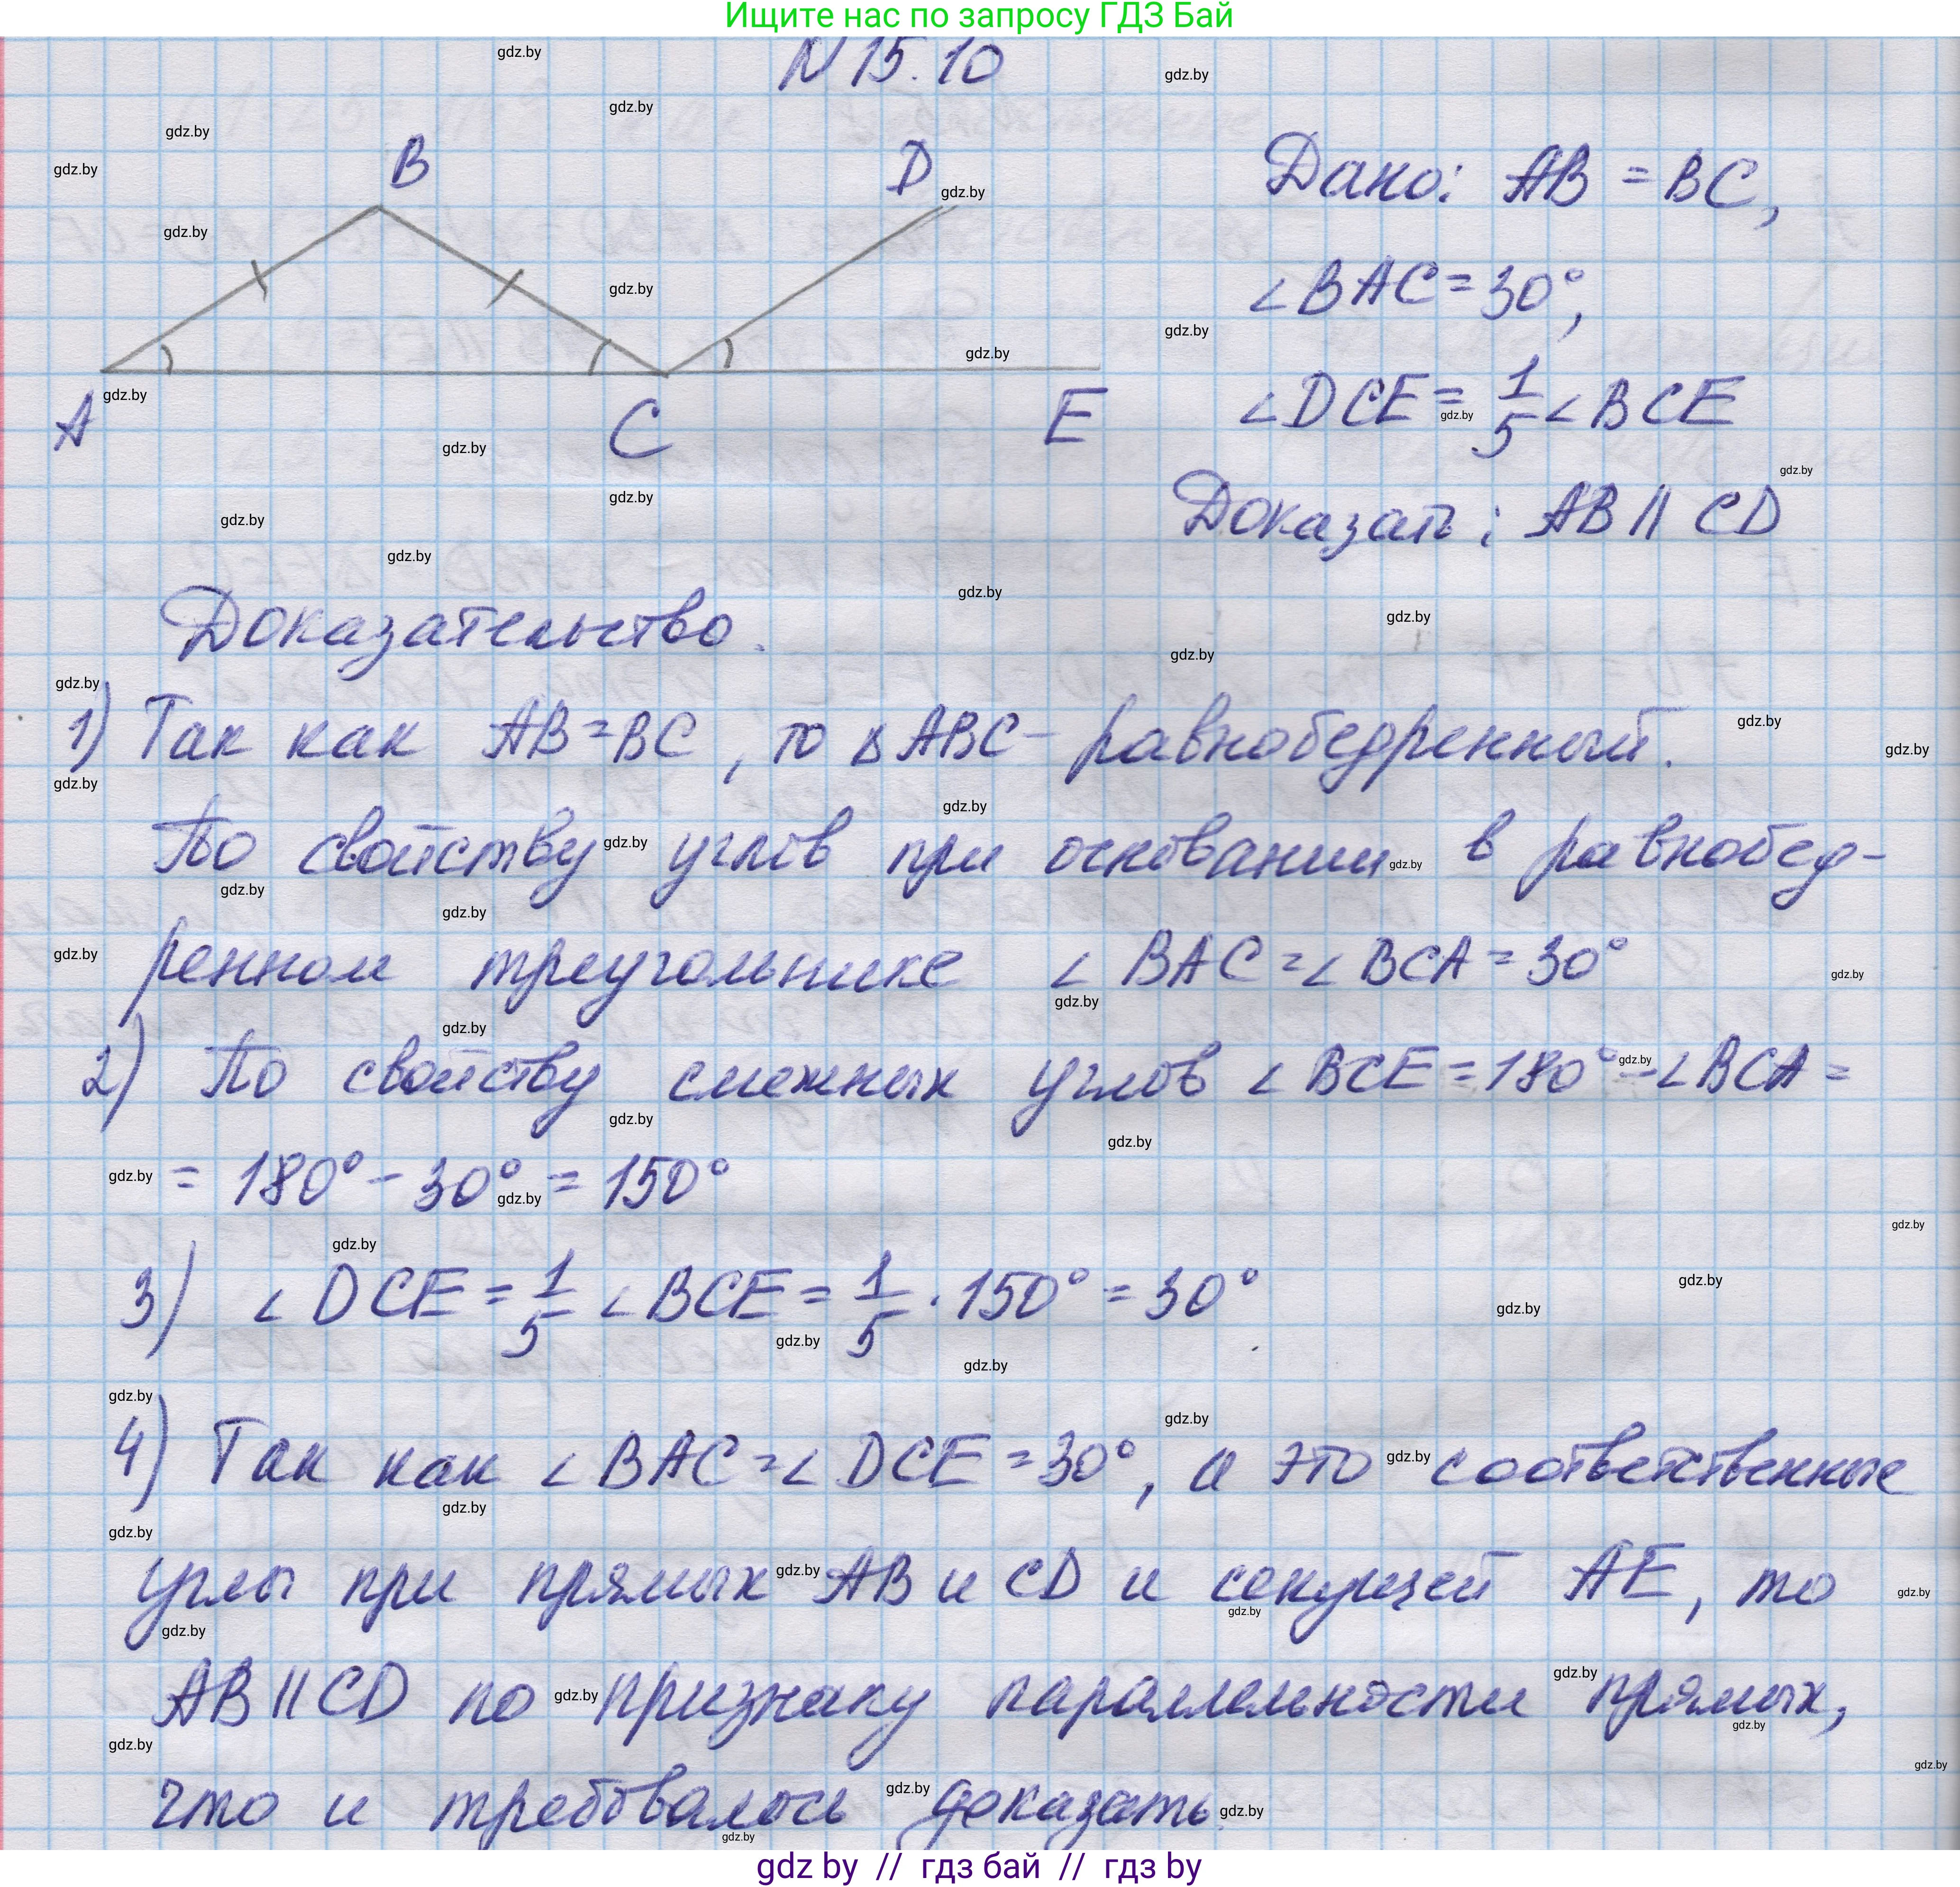 Ищите нас по запросу ГДЗ Бай
N 15.10
B
D
A
C
E
Дано: AB = BC,
∠BAC = 30°,
∠DCE = 1/5 ∠BCE
Доказать: AB || CD
Доказательство.
1) Так как AB = BC, то △ABC - равнобедренный.
По свойству углов при основании в равнобед-
ренном треугольнике ∠BAC = ∠BCA = 30°
2) По свойству смежных углов ∠BCE = 180° - ∠BCA =
= 180° - 30° = 150°
3) ∠DCE = 1/5 ∠BCE = 1/5 · 150° = 30°.
4) Так как ∠BAC = ∠DCE = 30°, а это соответственные
углы при прямых AB и CD и секущей AE, то
AB || CD по признаку параллельности прямых,
что и требовалось доказать.
gdz by // гдз бай // гдз by